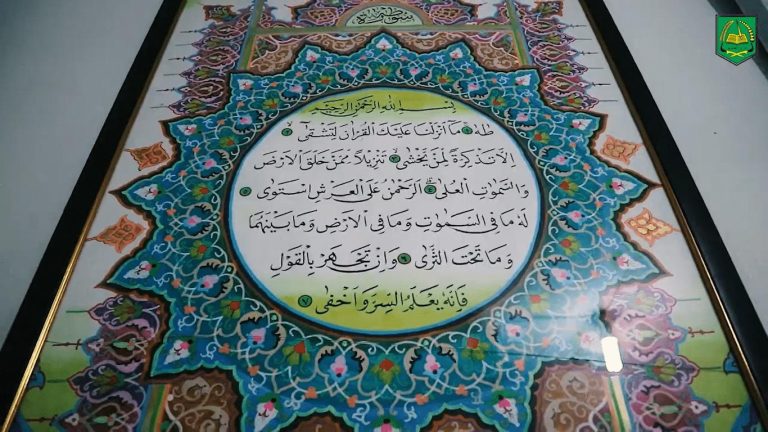 سورة طه
بسم الله الرحمن الرحيم
طه ١ ما انزلنا عليك القران لتشقى ٢
الا تذكرة لمن يخشى ٣ تنزيلا ممن خلق الارض
والسموت العلى ٤ الرحمن على العرش استوى ٥
له ما في السموت وما في الارض وما بينهما
وما تحت الثرى ٦ وان تجهر بالقول
فانه يعلم السر واخفى ٧